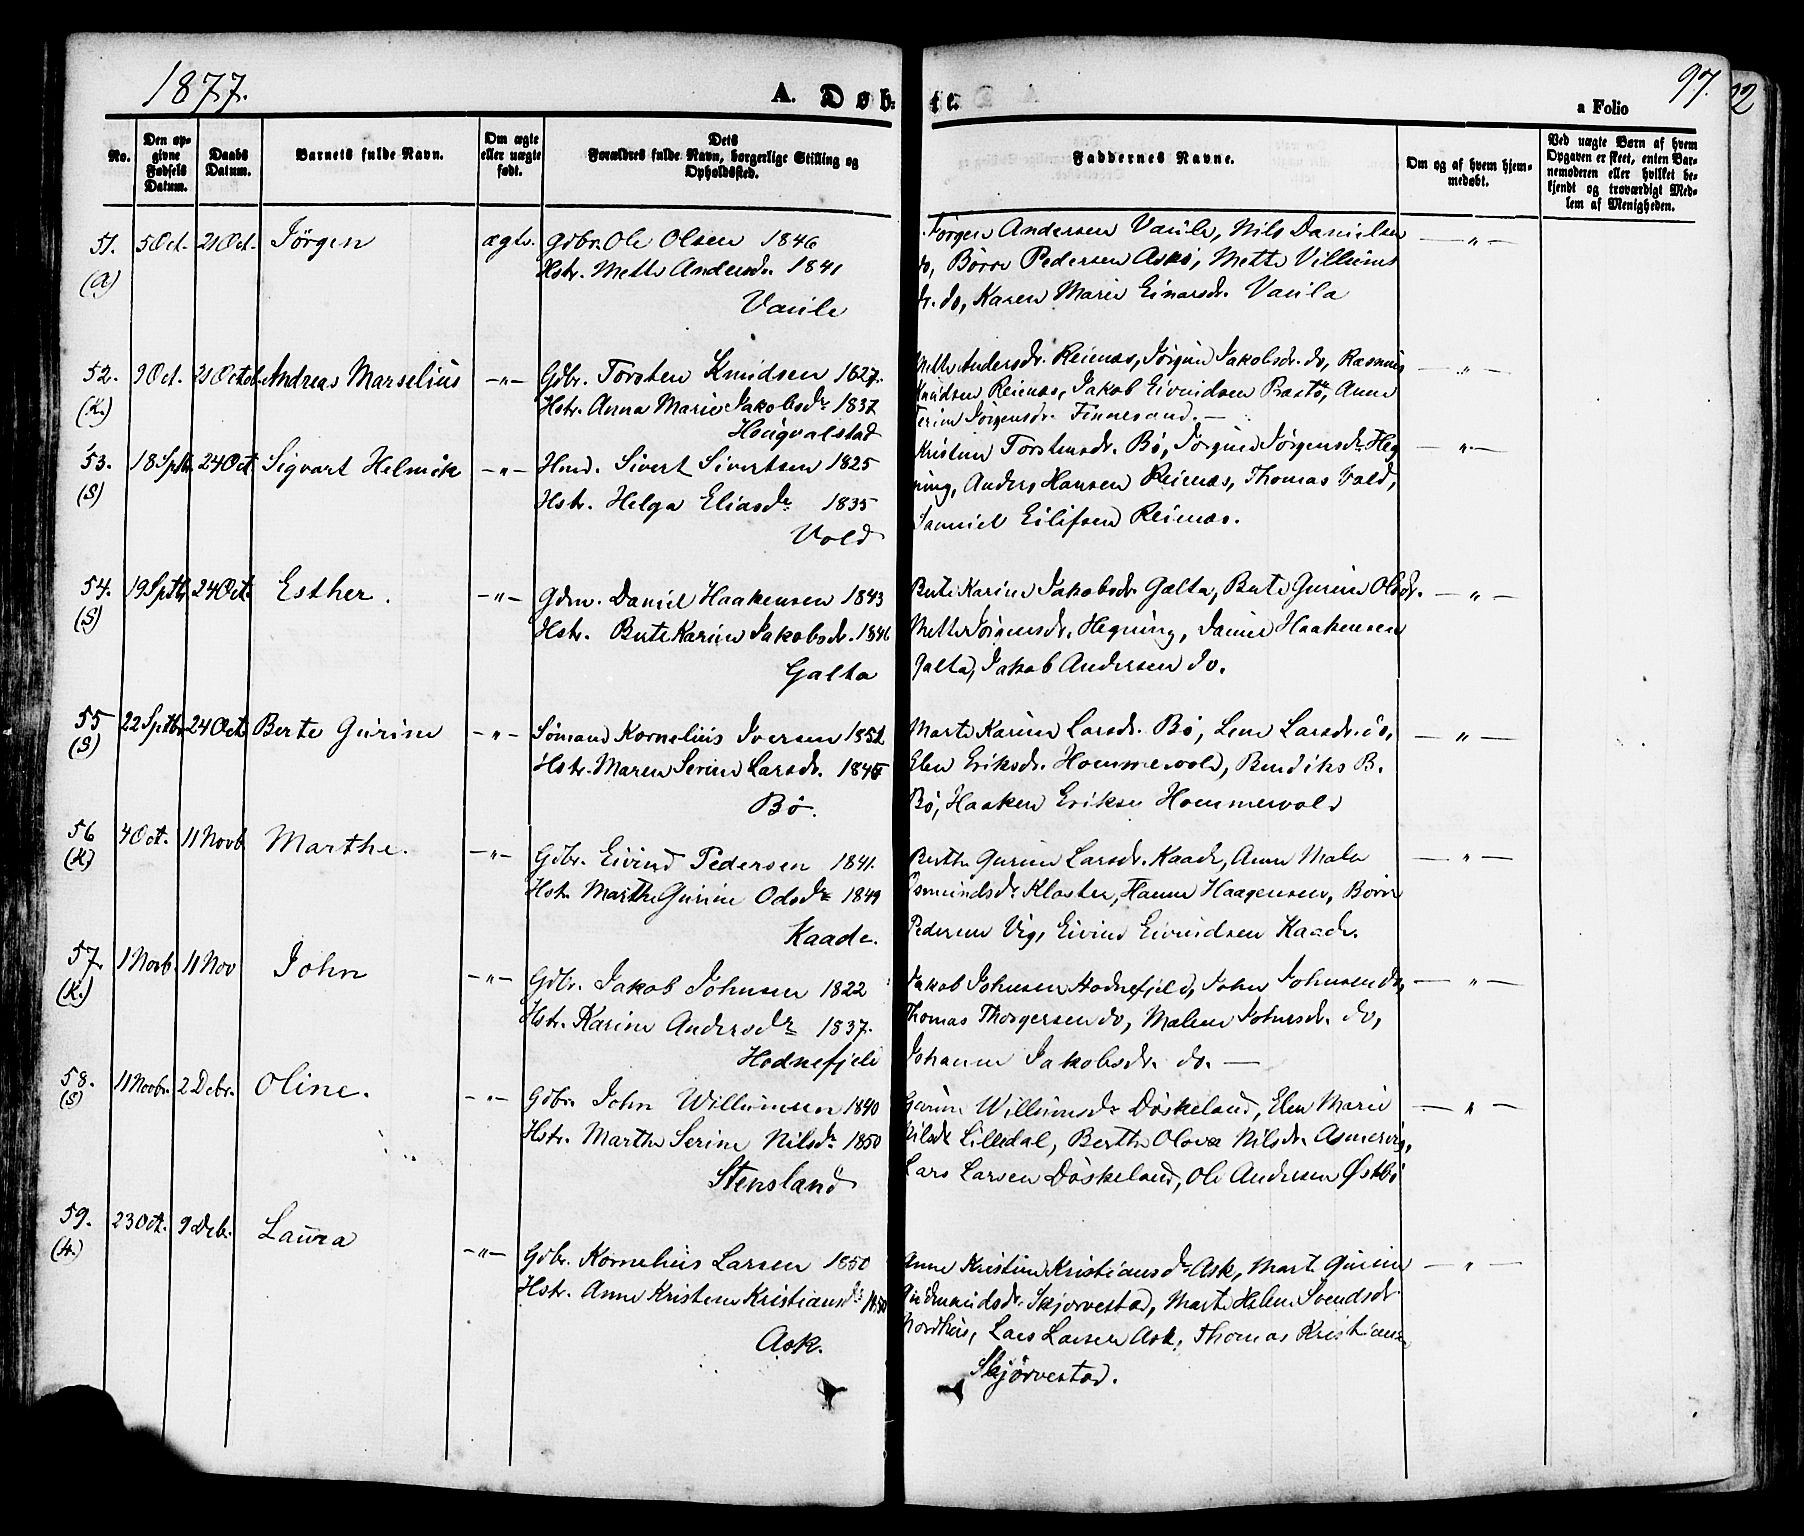 1877.
A. Døb-
te.
a Folio
97.
2
No.
Den op-
givne
Fødsels
Datum.
Daabs
Datum.
Barnets fulde Navn.
Om ægte
eller uægte
født.
Dets
Forældres fulde Navn, borgerlige Stilling og
Opholdssted.
Faddernes Navne.
Om og af hvem hjem-
medøbt.
Ved uægte Børn af hvem
Opgaven er skeet, enten Bar-
nemoderen eller hvilket be-
kjendt og troværdigt Med-
lem af Menigheden.
51. 5 Oct. 21 Oct. Jörgen ægte. Gdbr. Ole Olsen 1846
(A) Hstr. Mette Andersdr. 1841
Vaule
Jörgen Andersen Vaule, Nils Danielsen — " —
do, Börre Pedersen Askö, Mette Villums
dr. do, Karen Marie Einarsdr. Vaula
52. 9 Oct. 21 Octob. Andreas Marselius — " — Gdbr. Torsten Knudsen 1827.
(K.) Hstr. Anna Marie Jakobsdr 1837
Hougvalstad
Mette Andersdr. Reienæs, Jörgine Jakobsdr. do, Rasmus — " —
Knudsen Reienæs, Jakob Eivindsen Præstö, Anne
Serine Jörgensdr. Finnesand. —
53. 18 Sptb. 24 Oct Sigvart Helmik — " — Hmd. Sivert Sivertsen 1825
(S) Hstr. Helga Eliasdr 1835
Vold
Kristine Torstensdr. Bö, Jörgine Jörgensdr Heg — " —
ning, Anders Hansen Reienæs, Thomas Vald,
Samuel Eilifsen Reienæs.
54. 19 Sptb. 24 Oct. Esther. — " — Gdm. Daniel Haakensen 1843
(S) Hstr. Berte Karine Jakobsdr. 1846
Galta
Berte Karine Jakobsdr. Galta, Berte Gurine Olsdr. — " —
Mette Jörgensdr. Hegning, Daniel Haakensen
Galta, Jakob Andersen do.
55 22 Sptbr. 24 Oct Berte Gurine — " — Sömand Kornelius Iversen 1852
(S) Hstr. Maren Serine Larsdr. 1845
Bö.
Marte Karine Larsdr. Bö, Lene Larsdr. do, — " —
Elen Eriksdr. Hommevold, Bendiks B.
Bö, Haaken Eriksen Hommevold
56 4 Oct. 11 Novb Marthe. — " — Gdbr. Eivind Pedersen 1841.
(K) Hstr Marthe Gurine Odsdr 1849
Kaade.
Berthe Gurine Larsdr. Kaade, Anne Malene — " —
Osmundsdr Kloster, Hanne Haagensen, Börre
Pedersen Vig, Eivind Eivindsen Kaade.
57. 1 Novb. 11 Nov John — " — Gdbr. Jakob Johnsen 1822
(K.) Hstr. Karine Andersdr 1837.
Hodnefjeld
Jakob Johnsen Hodnefjeld, John Johnsen do, — " —
Thomas Thorgersen do, Malene Johnsdr. do,
Johanne Jakobsdr. do. —
58. 11 Novbr. 2 Debr. Oline. — " — Gdbr. John Willumsen 1840
(S) Hstr. Marthe Serine Nilsdr 1850
Stensland
Gurine Willumsdr Döskeland, Elen Marie — " —
Nilsdr Lilledal, Berthe Olova Nilsdr. Asmervig,
Lars Larsen Döskeland, Ole Andersen Østbö
59. 23 Oct. 9 Deb. Laura — " — Gdbr. Kornelius Larsen 1850
(A.) Hstr. Anne Kristine Kristiansdr 1850
Ask.
Anne Kristine Kristiansdr Ask, Marte Gurine — " —
Gudmundsdr. Skjörvestad, Marte Helene Svendsdr
Nordhus, Lars Larsen Ask, Thomas Kristiansen
Skjörvestad.